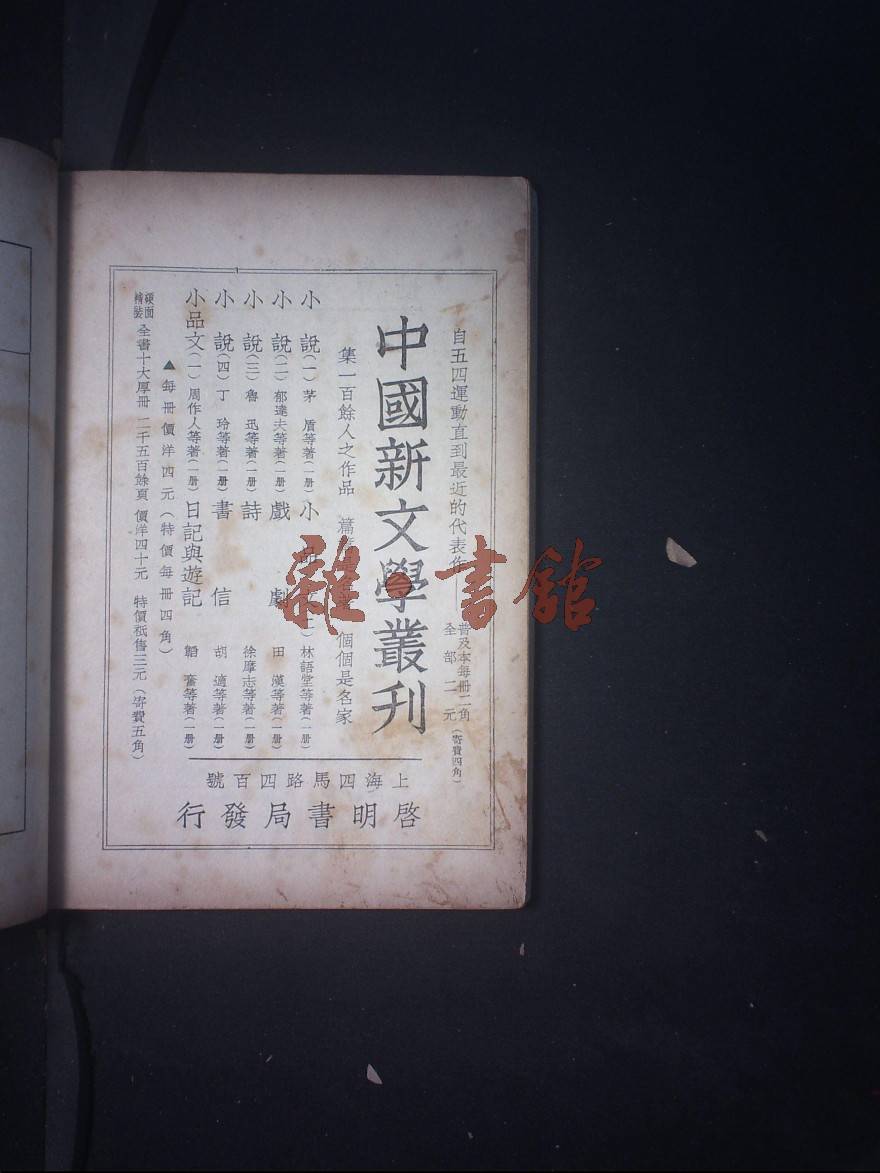 自五四運動直到最近的代表作
普及本每冊二角
全部二元
(寄費四角)
中國新文學叢刊
集一百餘人之作品 篇 個個是名家
小說(一)茅盾等著(一册)
小說(二)郁達夫等著(一册)
小說(三)魯迅等著(一册)
小說(四)丁玲等著(一册)
小品文(一)周作人等著(一册)
小品 林語堂等著(一册)
戲劇 田漢等著(一册)
詩 徐摩志等著(一册)
書信 胡適等著(一册)
日記與遊記 韜奮等著(一册)
▲每冊價洋四元(特價每冊四角)
硬面精裝 全書十大厚冊 二千五百餘頁 價洋四十元 特價祇售三元(寄費五角)
上海四馬路四百號
啓明書局發行
雜·書館